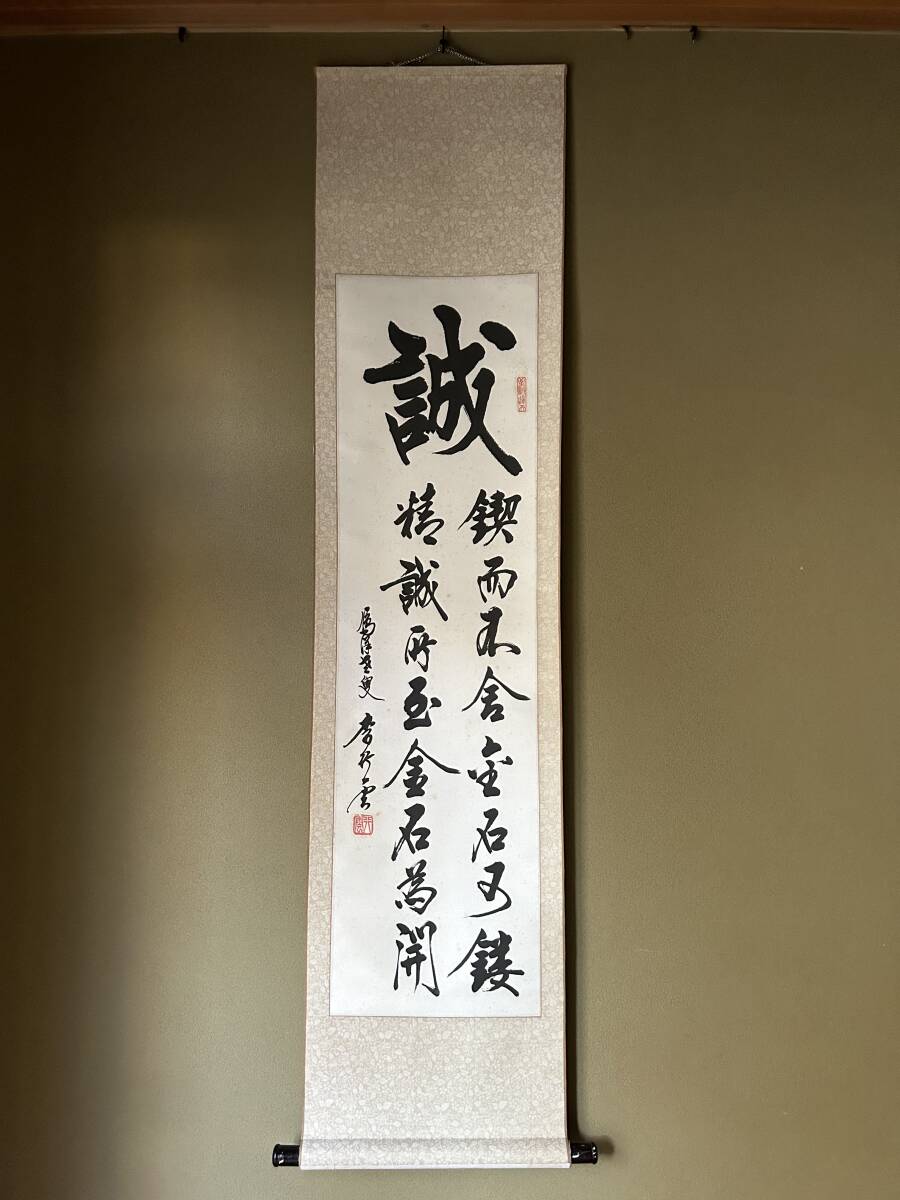 誠
鍥而不舍金石可鏤
精誠所至金石為開
李行雲